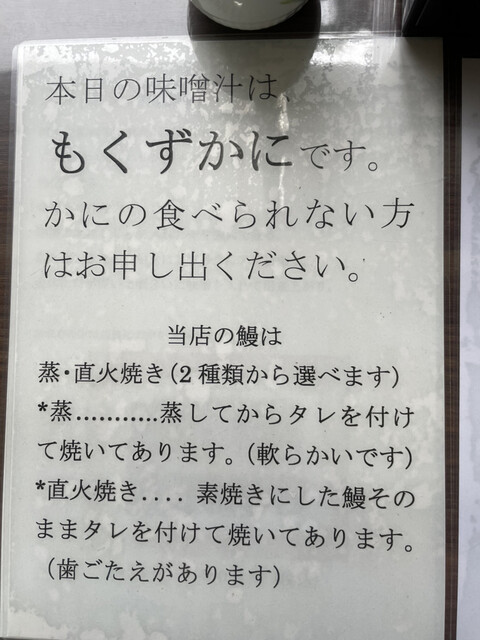 本日の味噌汁は、
もくずかにです。
かにの食べられない方
はお申し出ください。
当店の鰻は
蒸・直火焼き(2種類から選べます)
*蒸...........蒸してからタレを付け
て焼いてあります。(軟らかいです)
*直火焼き.... 素焼きにした鰻その
ままタレを付けて焼いてあります。
(歯ごたえがあります)